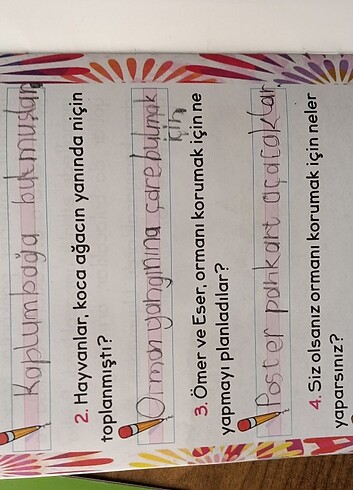 Kaplumbağa bulmuşlar
2. Hayvanlar, koca ağacın yanında niçin
toplanmıştı?
Orman yangınına çare bulmak
için
3. Ömer ve Eser, ormanı korumak için ne
yapmayı planladılar?
Poster pankart açacaklar
4. Siz olsanız ormanı korumak için neler
yaparsınız?